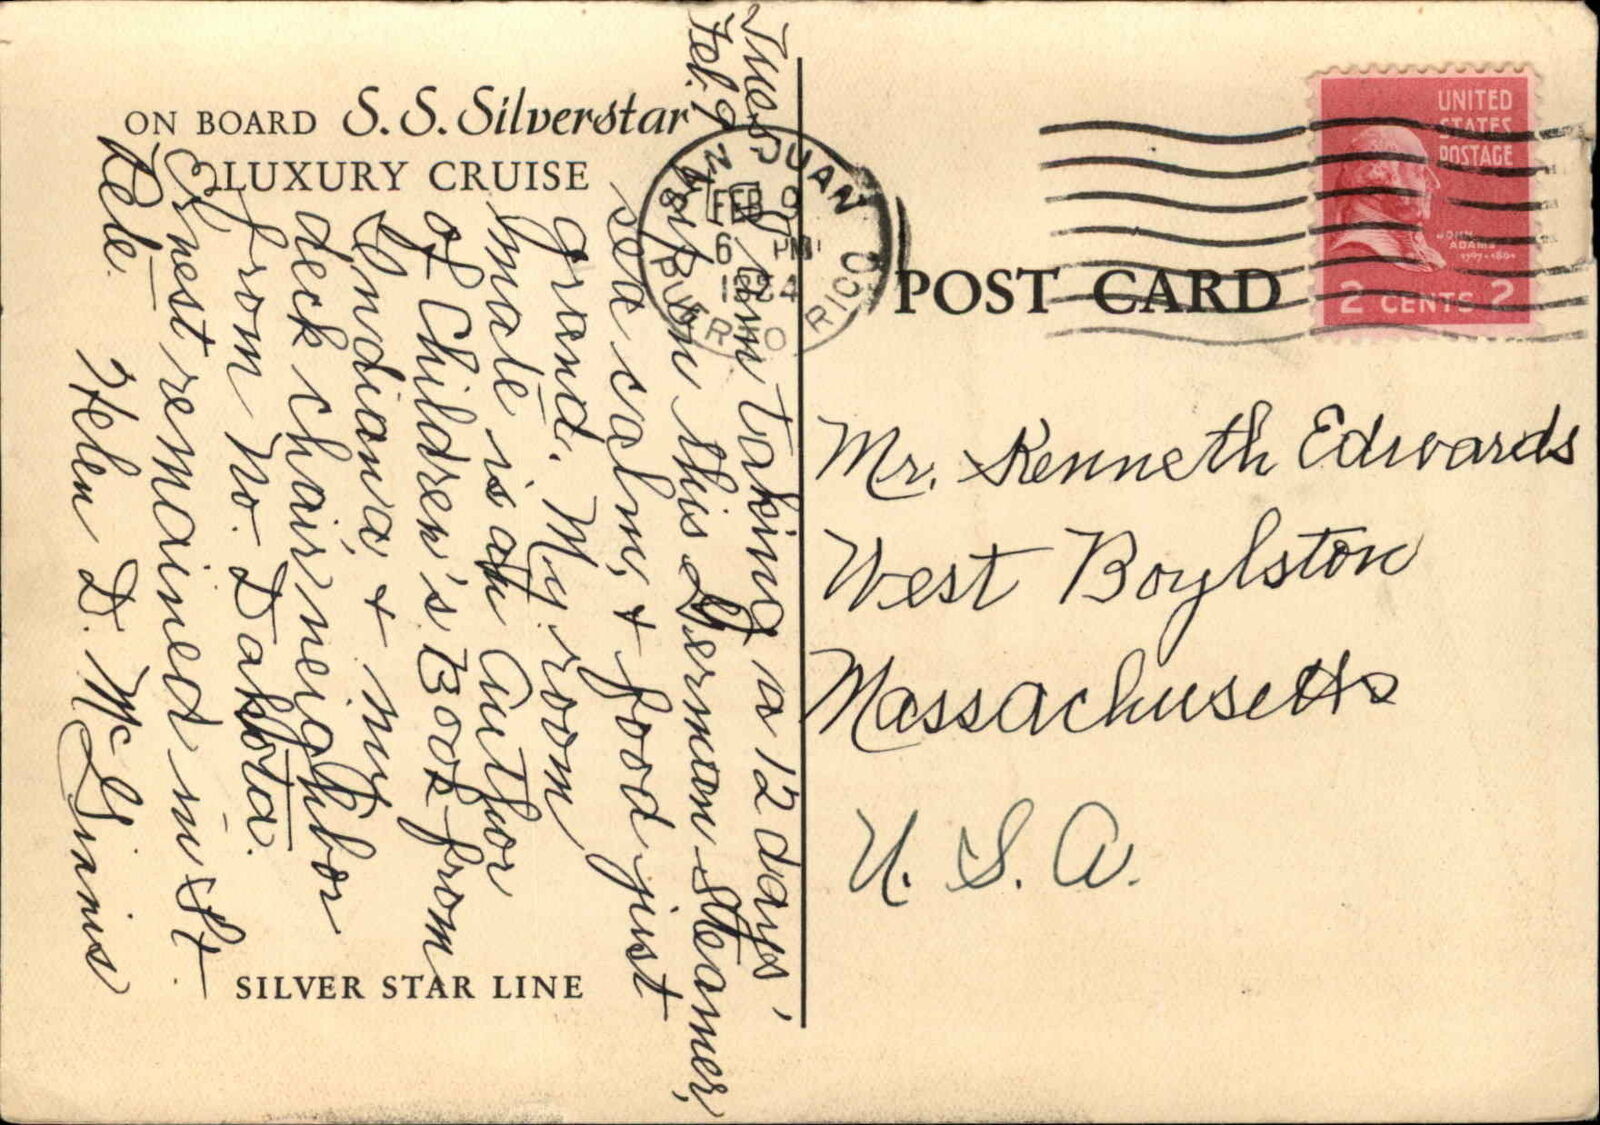 ON BOARD S. S. Silverstar
LUXURY CRUISE
Tues.
Feb. 9
I am taking a 12 days'
trip on this German Steamer,
sea calm, + food just
grand. My room
mate is an Author
of Children's Book from
Indiana, + my
deck chair neighbor
from No. Dakota.
Ernest remained in St.
Pete.
Helen D. McGinnis
SILVER STAR LINE
SAN JUAN
FEB 9
6 PM
1954
PUERTO RICO
POST CARD
UNITED
STATES
POSTAGE
JOHN
ADAMS
1797-1801
2 CENTS 2
Mr. Kenneth Edwards
West Boylston
Massachusetts
U. S. A.